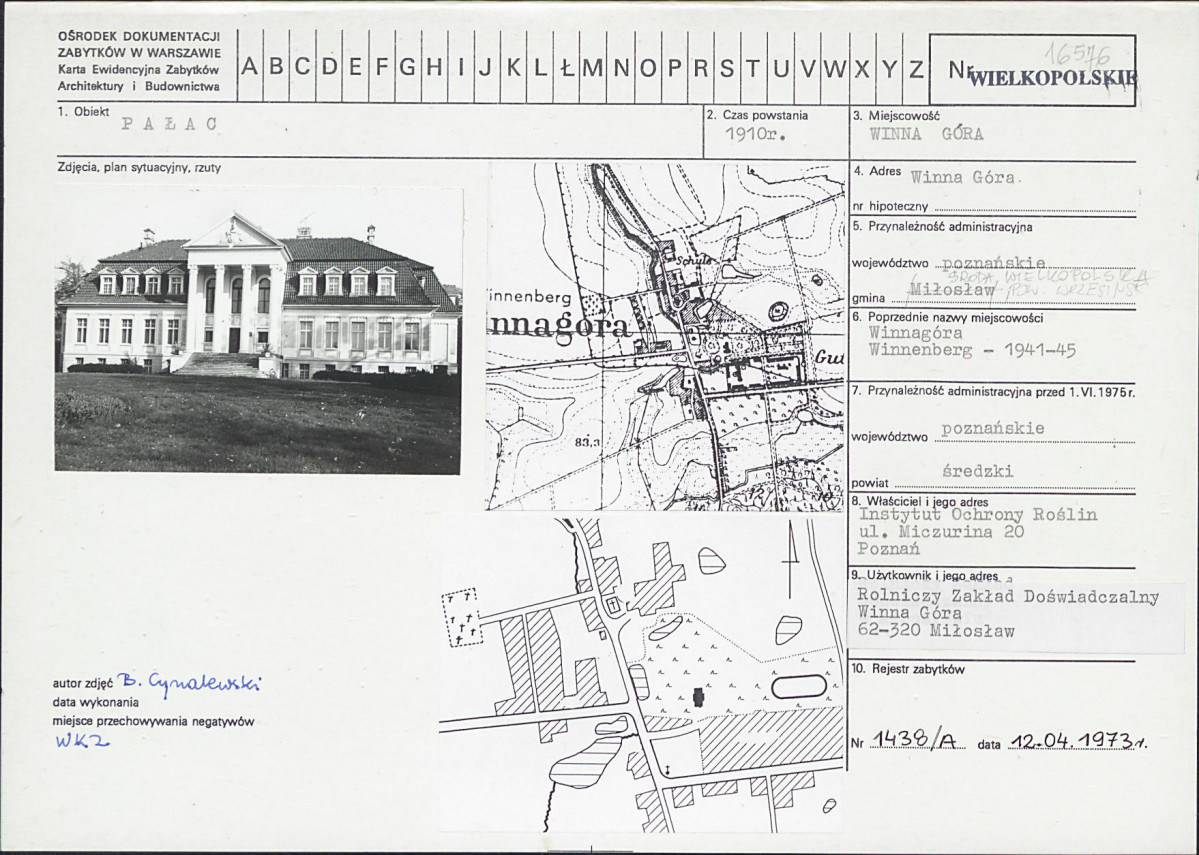 OŚRODEK DOKUMENTACJI
ZABYTKÓW W WARSZAWIE
Karta Ewidencyjna Zabytków
Architektury i Budownictwa
A B C D E F G H I J K L Ł M N O P R S T U V W X Y Z
Nr
16576
WIELKOPOLSKIE
1. Obiekt
PAŁAC
2. Czas powstania
1910r.
3. Miejscowość
WINNA GÓRA
Zdjęcia, plan sytuacyjny, rzuty
4. Adres Winna Góra.
nr hipoteczny
5. Przynależność administracyjna
województwo poznańskie
ŚRODA WIELKOPOLSKA
gmina Miłosław / POW. WRZESIŃSK
6. Poprzednie nazwy miejscowości
Winnagóra
Winnenberg - 1941-45
7. Przynależność administracyjna przed 1. VI. 1975 r.
województwo poznańskie
powiat średzki
8. Właściciel i jego adres
Instytut Ochrony Roślin
ul. Miczurina 20
Poznań
9. Użytkownik i jego adres
Rolniczy Zakład Doświadczalny
Winna Góra
62-320 Miłosław
10. Rejestr zabytków
Nr 1438/A data 12.04.1973 r.
Schule
innenberg
nnagóra
Gut
83,3
autor zdjęć B. Cynalewski
data wykonania
miejsce przechowywania negatywów
WKZ